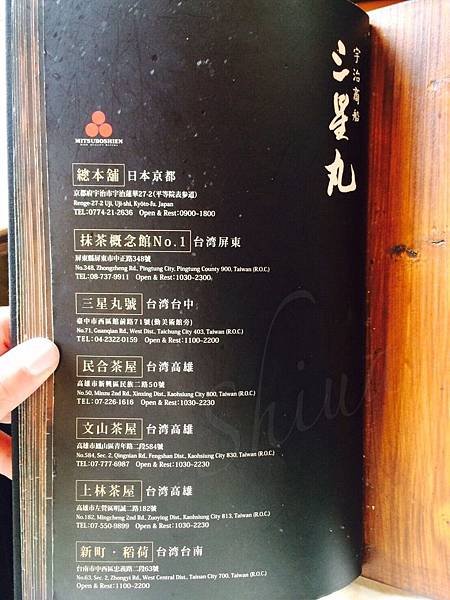 宇治商船
三星丸
MITSUBOSHIEN
總本舖 日本京都
京都府宇治市宇治蓮華27-2(平等院表參道)
Renge-27-2 Uji, Uji-shi, Kyōto-fu, Japan
TEL:0774-21-2636 Open & Rest:0900-1800
抹茶概念館No.1 台湾屏東
屏東縣屏東市中正路348號
No.348, Zhongzheng Rd., Pingtung City, Pingtung County 900, Taiwan (R.O.C.)
TEL:08-737-9911 Open & Rest:1030-2300
三星丸號 台湾台中
臺中市西區館前路71號(勤美術館旁)
No.71, Guanqian Rd., West Dist., Taichung City 403, Taiwan (R.O.C.)
TEL: 04-2322-0159 Open & Rest:1100-2200
民合茶屋 台湾高雄
高雄市新興區民族二路50號
No.50, Minzu 2nd Rd., Xinxing Dist., Kaohsiung City 800, Taiwan (R.O.C.)
TEL: 07-226-1616 Open & Rest:1030-2230
文山茶屋 台湾高雄
高雄市鳳山區青年路二段584號
No.584, Sec. 2, Qingnian Rd., Fengshan Dist., Kaohsiung City 830, Taiwan (R.O.C.)
TEL:07-777-6987 Open & Rest:1030-2230
上林茶屋 台湾高雄
高雄市左營區明誠二路182號
No.182, Mingcheng 2nd Rd., Zuoying Dist., Kaohsiung City 813, Taiwan (R.O.C.)
TEL: 07-550-9899 Open & Rest:1030-2230
新町・稻荷 台湾台南
台南市中西區忠義路二段63號
No.63, Sec. 2, Zhongyi Rd., West Central Dist., Tainan City 700, Taiwan (R.O.C.)
Open & Rest:1100-2200